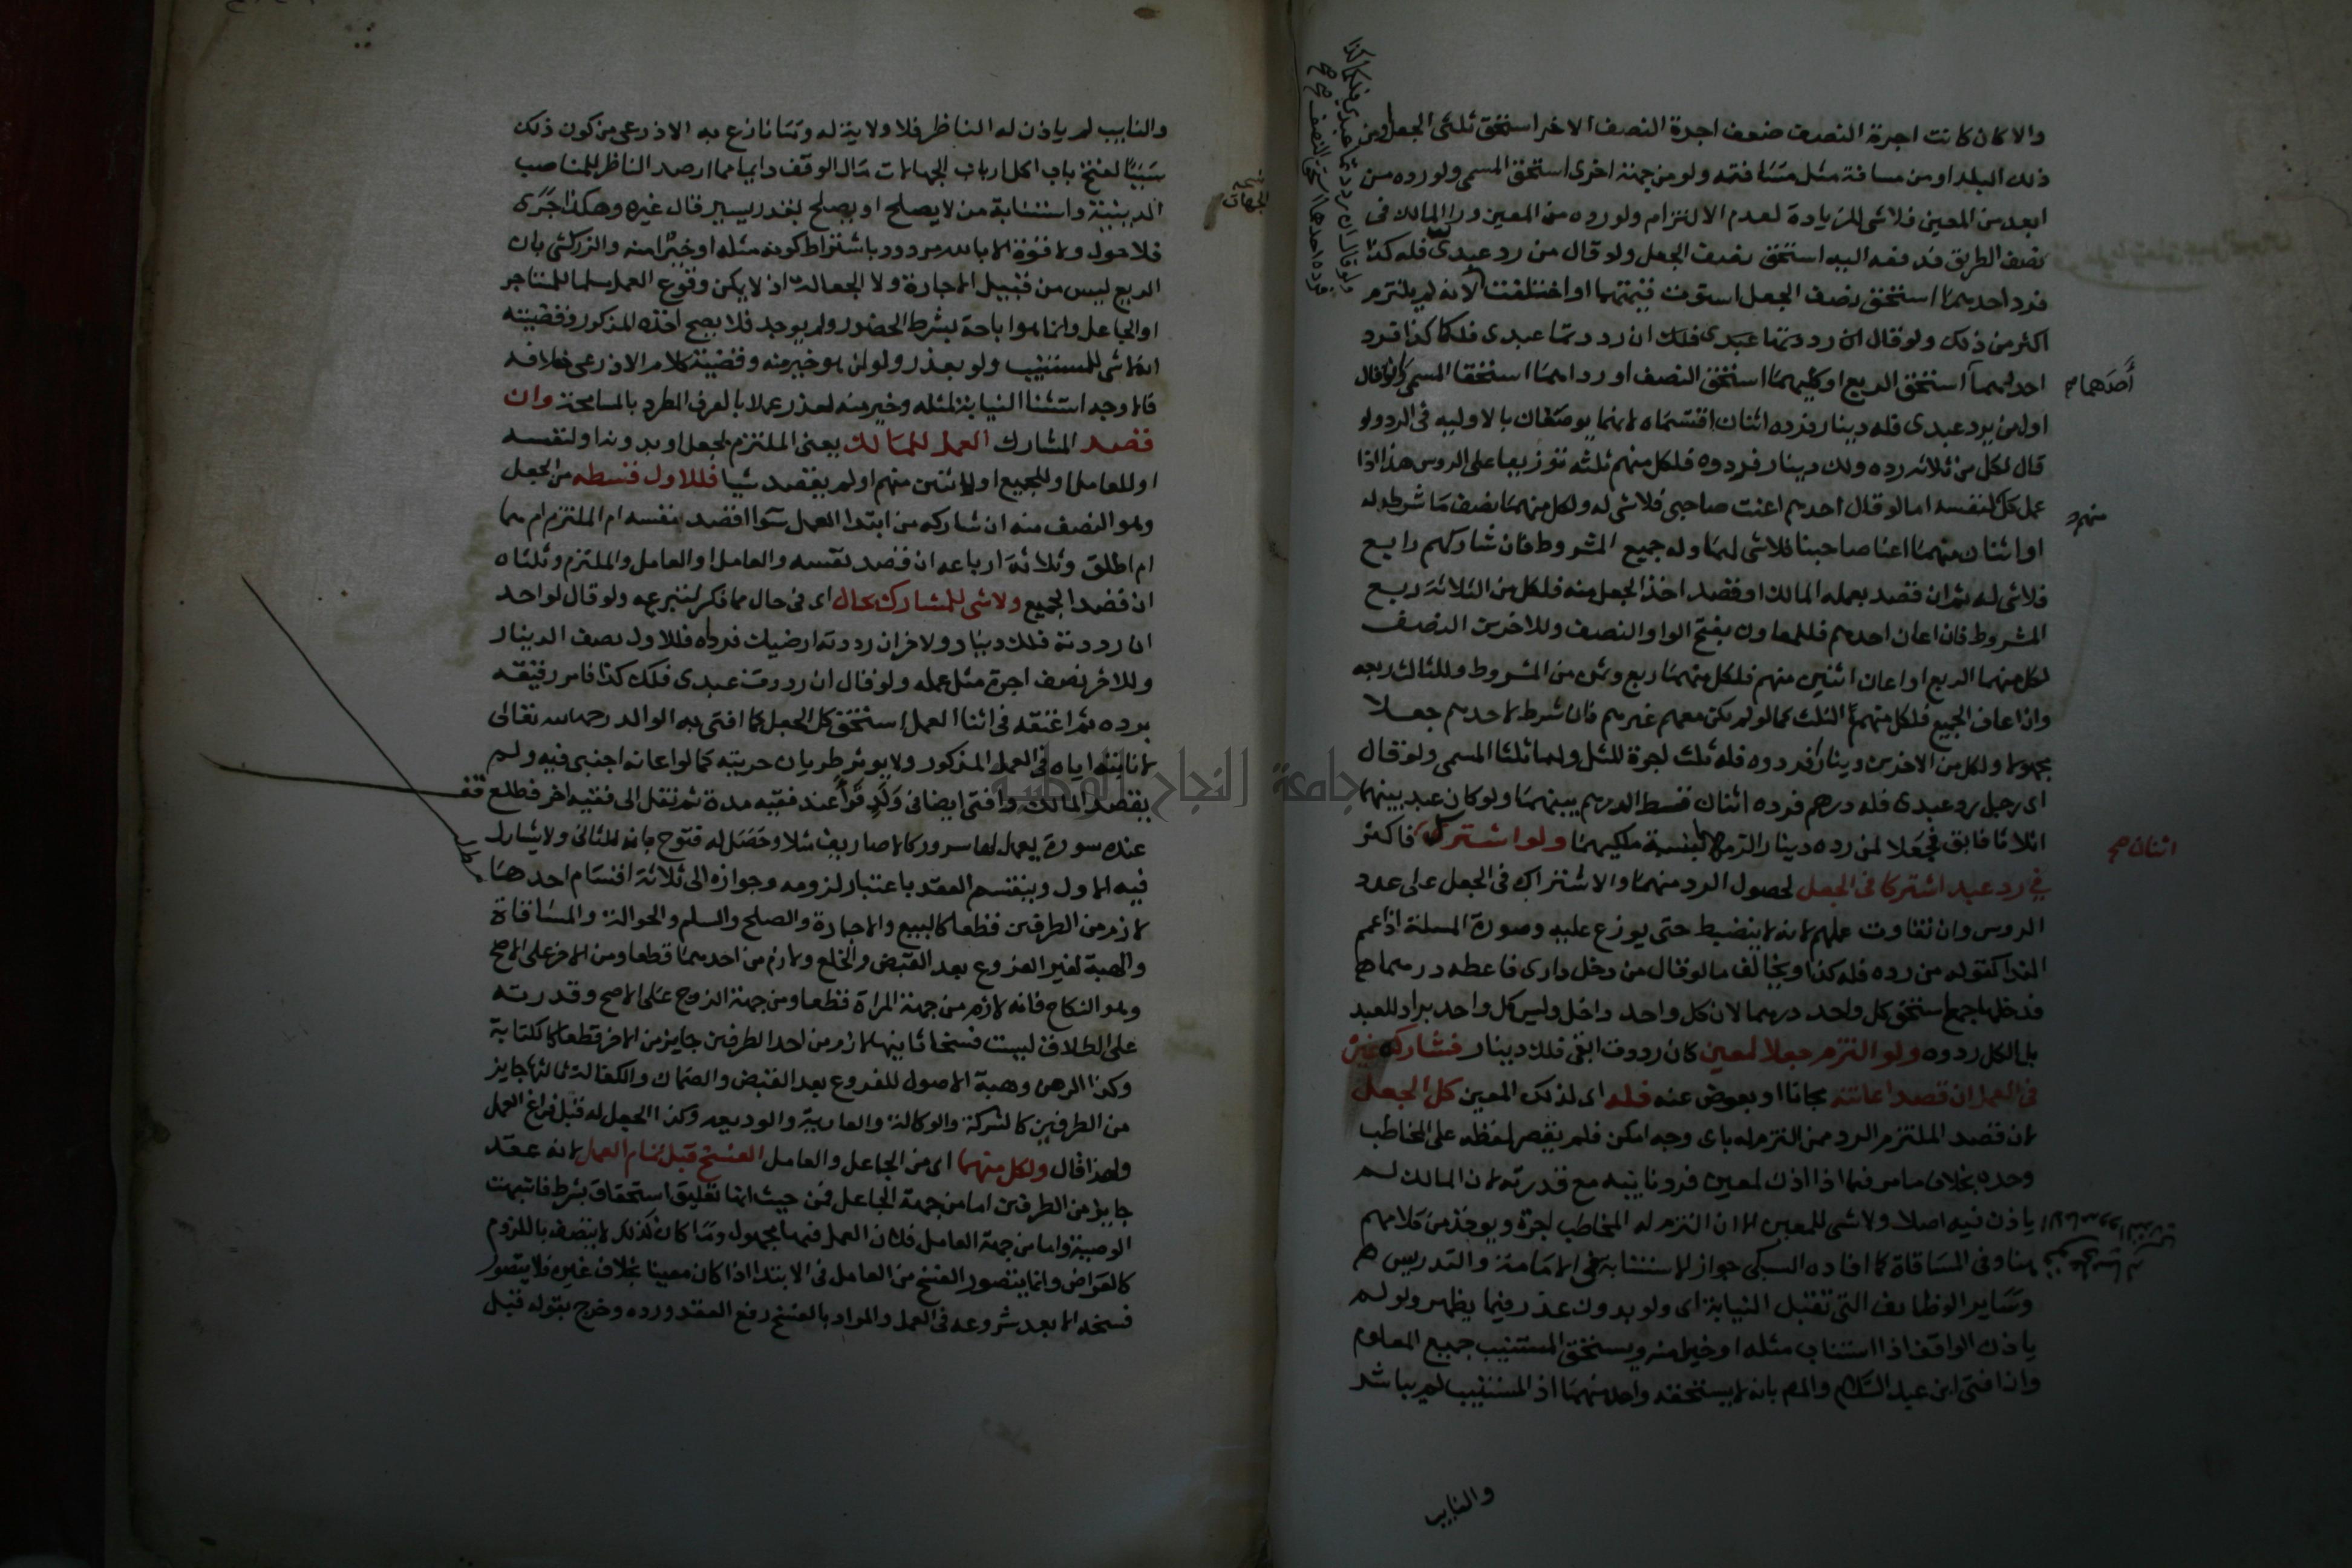 والا كان كانت اجرة النصف ضعف اجرة النصف الاخر استحق ثلثى الجعل او من
ذلك البلد او من مسافة مثل مسافته ولو من جهة اخرى استحق المسمى ولو رده من
ابعد من المعين فلا شى للزيادة لعدم الالتزام ولو رده من المعين وراى المالك فى
نصف الطريق فدفعه اليه استحق نصف الجعل ولو قال من رد عبدى فله كذا
فرد احدهما استحق نصف الجعل استوت قيمتهما او اختلفت لانه لم يلتزم
اكثر من ذلك ولو قال ان رددتما عبدى فلك ان رددتما عبدى فلكما كذا فرد
احدهما استحق الربع او كليهما استحق النصف او رداهما استحقا المسمى ولو قال
اول من يرد عبدى فله دينار فرده اثنان اقتسماه لانهما يوصفان بالاولية فى الرد ولو
قال لكل من ثلاثه رده ولك دينار فردوه فلكل منهم ثلثه توزيعا على الروس هذا اذا
عمل كل لنفسه اما لو قال احدهم اعنت صاحبى فلا شى له ولكل منهما نصف ما شرط له
او اثنان منهما اعنا صاحبنا فلا شى لهما وله جميع المشروط فان شاركهم رابع
فلا شى له ثم ان قصد بعمله المالك او قصد اخذ الجعل منه فلكل من الثلاثة ربع
المشروط فان اعان احدهم فللمعاون بفتح الواو النصف وللاخرين النصف
لكل منهما الربع او اعان اثنين منهم فلكل منهما ربع وثمن من المشروط وللثالث ربعه
وان اعان الجميع فلكل منهم الثلث كما لو لم يكن معهم غيرهم فان شرط لاحدهم جعلا
مجهولا ولكل من الاخرين دينار فردوه فله ثلث اجرة المثل ولهما ثلثا المسمى ولو قال
اى رجل رد عبدى فله درهم فرده اثنان قسط الدرهم بينهما ولو كان عبد بينهما
اثلاثا فابق فجعلا لمن رده دينارا لزمهما بنسبة ملكيهما ولو اشترك فاكثر
في رد عبد اشتركا فى الجعل لحصول الرد منهما والاشتراك فى الجعل على عدد
الروس وان تفاوت عملهم لانه لا ينضبط حتى يوزع عليه وصورة المسلة اذا عمم
الندا كقوله من رده فله كذا ويخالف ما لو قال من دخل دارى فاعطه درهما
فدخلها جمع استحق كل واحد درهما لان كل واحد داخل وليس كل واحد براد للعبد
بل الكل ردوه ولو التزم جعلا لمعين كان رددت ابقى فلك دينار فشاركه غيره
فى العمل ان قصد اعانته مجانا او بعوض عنه فله اى لذلك المعين كل الجعل
لان قصد الملتزم الرد ممن التزم له باى وجه امكن فلم يقصر لفظه على المخاطب
وحده بخلاف ما مر فيما اذا اذن لمعين فرد نايبه مع قدرته لان المالك لم
ياذن فيه اصلا ولا شى للمعين الا ان التزم له المخاطب اجرة ويوخذ من كلامهم
هنا وفى المساقاة كما افاده السبكى جواز الاستنابة فى الامامة والتدريس
وساير الوظايف التى تقبل النيابة اى ولو بدون عذر فيما يظهر ولو لم
ياذن الواقف اذا استناب مثله او خيرا منه ويستحق المستنيب جميع المعلوم
وان افتى ابن عبد السلام والمص بانه لا يستحقه واحد منهما اذ المستنيب لم يباشر
والنايب
احدهما صح
منهم
اثنان صح
والنايب لم ياذن له الناظر فلا ولاية له وما نازع به الاذرعى من كون ذلك
سببا لفتح باب اكل ارباب الجهالات مال الوقف دايما مما ارصد الناظر للمناصب
الدينية واستنابة من لا يصلح او يصلح بنذر يسير قال غيره وهكذا جرى
فلا حول ولا قوة الا بالله مردود باشتراط كونه مثله او خيرا منه والزركشى بان
الريع ليس من قبيل الاجارة ولا الجعالة اذ لا يمكن وقوع العمل مسلما للمستاجر
او الجاعل وانما هو اباحة بشرط الحضور ولم يوجد فلا يصح اخذه المذكور وقضيته
انه لا شى للمستنيب ولو بعذر ولو لمن هو خير منه وقضية كلام الاذرعى خلافه
فالاوجه استثنا النيابة لمثله وخير منه لعذر عملا بالعرف المطرد بالمسامحة وان
قصد المشارك العمل للمالك يعنى الملتزم بجعل او بدونه او لنفسه
او للعامل او للجميع او لاثنين منهم او لم يقصد شيا فللاول قسطه من الجعل
وهو النصف منه ان شاركه من ابتدا العمل سوا اقصد نفسه ام الملتزم ام هما
ام اطلق وثلاثة ارباعه ان قصد نفسه والعامل او العامل والملتزم وثلثاه
ان قصد الجميع ولا شى للمشارك بحال اى فى حال مما ذكر لتبرعه ولو قال لواحد
ان رددته فلك دينار ولاخر ان رددته ارضيك فرداه فللاول نصف الدينار
وللاخر نصف اجرة مثل عمله ولو قال ان رددت عبدى فلك كذا فامر رقيقه
برده ثم اعتقه فى اثنا العمل استحق كل الجعل كما افتى به الوالد رحمه الله تعالى
لانابته اياه فى العمل المذكور ولا يوثر طريان حريته كما لو اعانه اجنبى فيه ولم
يقصد المالك وافتى ايضا فى ولد قرا عند فقيه مدة ثم نقل الى فقيه اخر فطلع
عنده سورة يعمل لها سرور كالاصاريف مثلا وحصل له فتوح بانه للثانى ولا يشارك
فيه الاول وينقسم العقد باعتبار لزومه وجوازه الى ثلاثة اقسام احدها
لازم من الطرفين قطعا كالبيع والاجارة والصلح والسلم والحوالة والمساقاة
والهبة لغير الفروع بعد القبض والخلع ولازم من احدهما قطعا ومن الاخر على الاصح
وهو النكاح فانه لازم من جهة المراة قطعا ومن جهة الزوج على الاصح وقدرته
على الطلاق ليست فسخا ثانيها لازم من احد الطرفين جايز من الاخر قطعا كالكتابة
وكذا الرهن وهبة الاصول للفروع بعد القبض والضمان والكفالة ثالثها جايز
من الطرفين كالشركة والوكالة والعارية والوديعه وكذا الجعل له قبل فراغ العمل
ولهذا قال ولكل منهما اى من الجاعل والعامل الفسخ قبل تمام العمل لانه عقد
جايز من الطرفين اما من جهة الجاعل فمن حيث انها تعليق استحقاق بشرط فاشبهت
الوصية واما من جهة العامل فلان العمل فيها مجهول وما كان كذلك لا يتصف باللزوم
كالقراض وانما يتصور الفسخ من العامل فى الابتدا اذا كان معينا بخلاف غيره فلا يتصور
فسخه الا بعد شروعه فى العمل والمراد بالفسخ رفع العقد ورده وخرج بقوله قبل
الجهات
جامعة النجاح الوطنية